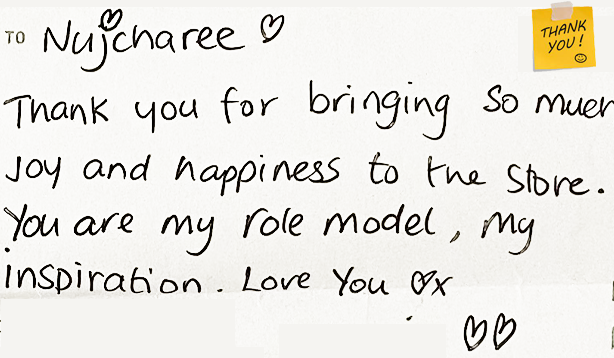 TO Nujcharee ♡
THANK
YOU! ☺
Thank you for bringing so much
Joy and happiness to the store.
You are my role model, my
inspiration. Love You ♡x
♡♡